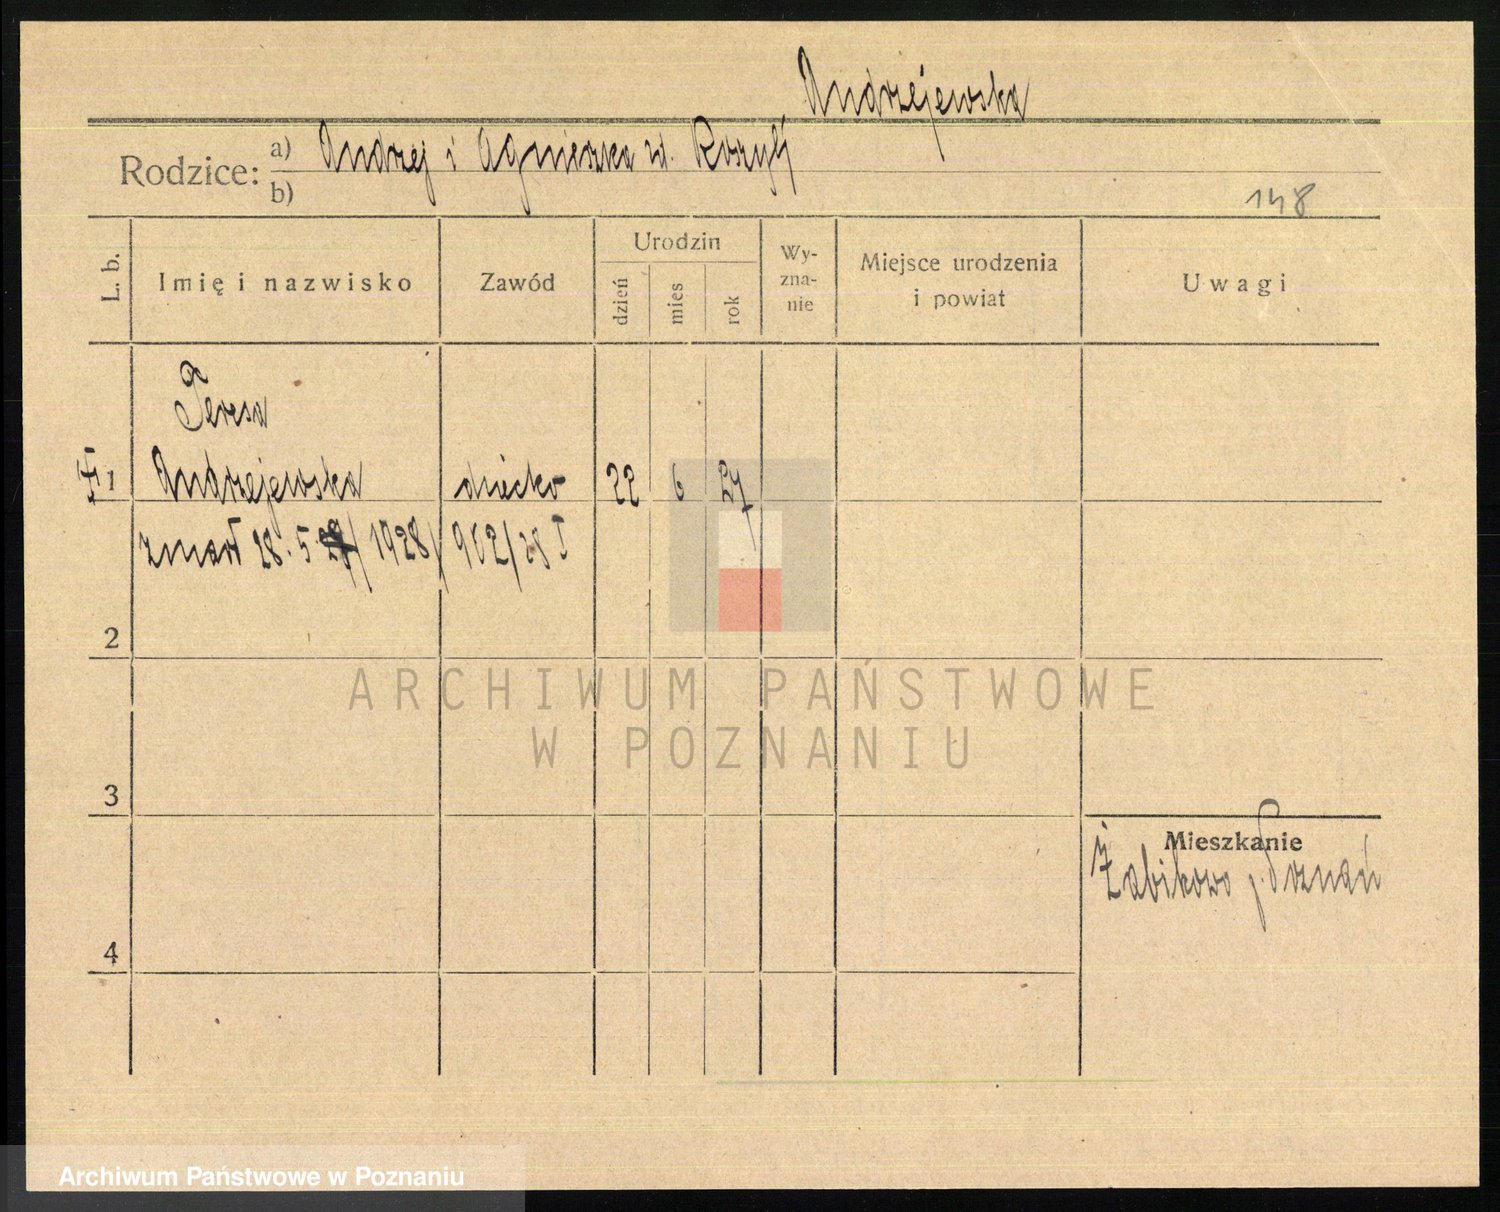 Andrzejewska
Rodzice: a) Andrzej i Agnieszka zd.
b)
148
L. b.
Imię i nazwisko
Zawód
Urodzin
dzień
mies
rok
Wy-
zna-
nie
Miejsce urodzenia
i powiat
Uwagi
Teresa
1 Andrzejewska dziecko 22 6 27
zmarł 28. 5. 1928/ 902/28 I
2
ARCHIWUM PAŃSTWOWE
W POZNANIU
3
Mieszkanie
Żabikowo p. Poznań
4
Archiwum Państwowe w Poznaniu